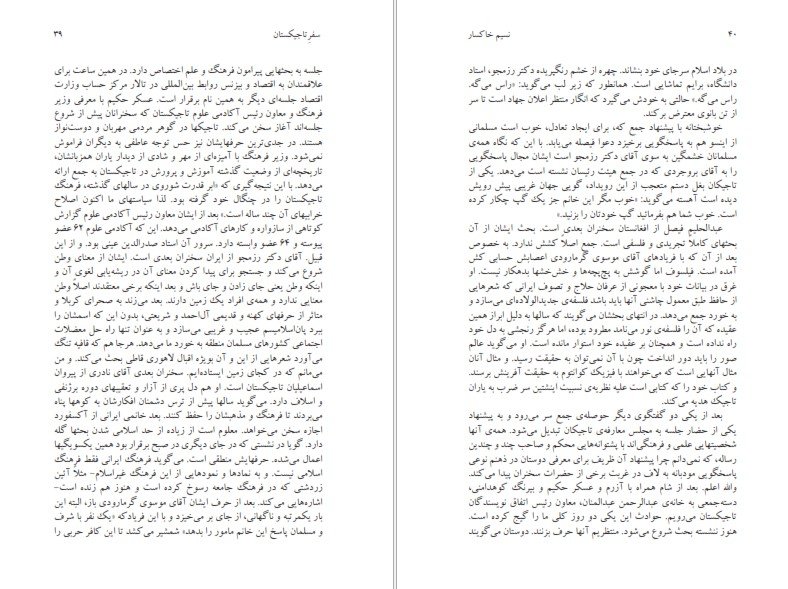 سفرِ تاجیکستان
۳۹
جلسه به بحثهایی پیرامون فرهنگ و علم اختصاص دارد. در همین ساعت برای
علاقمندان به اقتصاد و بیزنس روابط بین‌المللی در تالار مرکز حساب وزارت
اقتصاد جلسه‌ای دیگر به همین نام برقرار است. عسکر حکیم با معرفی وزیر
فرهنگ و معاون رئیس آکادمی علوم تاجیکستان که سخنرانان پیش از شروع
جلسه‌اند آغاز سخن می‌کند. تاجیکها در گوهر مردمی مهربان و دوست‌نواز
هستند. در جدی‌ترین حرفهایشان نیز حس توجه عاطفی به دیگران فراموش
نمی‌شود. وزیر فرهنگ با آمیزه‌ای از مهر و شادی از دیدار یاران همزبانشان،
تاریخچه‌ای از وضعیت گذشته آموزش و پرورش در تاجیکستان به جمع ارائه
می‌دهد. با این نتیجه‌گیری که «ابر قدرت شوروی در سالهای گذشته، فرهنگ
تاجیکستان را در چنگال خود گرفته بود. لذا سیاستهای ما اکنون اصلاح
خرابیهای آن چند ساله است.» بعد از ایشان معاون رئیس آکادمی علوم گزارش
کوتاهی از سازواره و کارهای آکادمی می‌دهد. این که آکادمی علوم ۶۲ عضو
پیوسته و ۶۴ عضو وابسته دارد. سرور آن استاد صدرالدین عینی بود. و از این
قبیل. آقای دکتر رزمجو از ایران سخنران بعدی است. ایشان از معنای وطن
شروع می‌کند و جستجو برای پیدا کردن معنای آن در ریشه‌یابی لغوی آن و
اینکه وطن یعنی جای زادن و جای باش و بعد اینکه برخی معتقدند اصلاً وطن
معنایی ندارد و همه‌ی افراد یک زمین دارند. بعد می‌زند به صحرای کربلا و
متاثر از حرفهای کهنه و قدیمی آل‌احمد و شریعتی، بدون این که اسمشان را
ببرد پان‌اسلامیسم عجیب و غریبی می‌سازد و به عنوان تنها راه حل معضلات
اجتماعی کشورهای مسلمان منطقه به خورد ما می‌دهد. هرجا هم که قافیه تنگ
می‌آورد شعرهایی از این و آن بویژه اقبال لاهوری قاطی بحث می‌کند. و من
می‌مانم که در کجای زمین ایستاده‌ایم. سخنران بعدی آقای نادری از پیروان
اسماعیلیان تاجیکستان است. او هم دل پری از آزار و تعقیبهای دوره برژنفی
و اسلاف دارد. می‌گوید سالها پیش از ترس دشمنان افکارشان به کوهها پناه
می‌بردند تا فرهنگ و مذهبشان را حفظ کنند. بعد خانمی ایرانی از آکسفورد
اجازه سخن می‌خواهد. معلوم است از زیاده از حد اسلامی شدن بحثها گله
دارد. گویا در نشستی که در جای دیگری در صبح برقرار بود همین یکسویگیها
اعمال می‌شده. حرفهایش منطقی است. می‌گوید فرهنگ ایرانی فقط فرهنگ
اسلامی نیست. و به نمادها و نمودهایی از این فرهنگ غیراسلام- مثلاً آئین
زردشتی که در فرهنگ جامعه رسوخ کرده است و هنوز هم زنده است-
اشاره‌هایی می‌کند. بعد از حرف ایشان آقای موسوی گرمارودی باز، البته این
بار یکمرتبه و ناگهانی، از جای بر می‌خیزد و با این فریاد‌که «یک نفر با شرف
و مسلمان پاسخ این خانم مامور را بدهد» شمشیر می‌کشد تا این کافر حربی را
۴۰
نسیم خاکسار
در بلاد اسلام سرجای خود بنشاند. چهره از خشم رنگپریده دکتر رزمجو، استاد
دانشگاه، برایم تماشایی است. همانطور که زیر لب می‌گوید: «راس می‌گه.
راس می‌گه.» حالتی به خودش می‌گیرد که انگار منتظر اعلان جهاد است تا سر
از تن بانوی معترض برکند.
خوشبختانه با پیشنهاد جمع که، برای ایجاد تعادل، خوب است مسلمانی
از اینسو هم به پاسخگویی برخیزد دعوا فیصله می‌یابد. با این که نگاه همه‌ی
مسلمانان خشمگین به سوی آقای دکتر رزمجو است ایشان مجال پاسخگویی
را به آقای بروجردی که در جمع هیئت رئیسان نشسته است می‌دهد. یکی از
تاجیکان بغل دستم متعجب از این رویداد، گویی جهان غریبی پیش رویش
دیده است آهسته می‌گوید: «خوب مگر این خانم جز یک گپ چکار کرده
است. خوب شما هم بفرمائید گپ خودتان را بزنید.»
عبدالحلیم فیصل از افغانستان سخنران بعدی است. بحث ایشان از آن
بحثهای کاملاً تجریدی و فلسفی است. جمع اصلاً کشش ندارد. به خصوص
بعد از آن که با فریادهای آقای موسوی گرمارودی اعصابش حسابی کش
آمده است. فیلسوف اما گوشش به پچ‌پچه‌ها و خش‌خشها بدهکار نیست. او
غرق در بیانات خود با معجونی از عرفان حلاج و تصوف ایرانی که شعرهایی
از حافظ طبق معمول چاشنی آنها باید باشد فلسفه‌ی جدیدالولاده‌ای می‌سازد و
به خورد جمع می‌دهد. در انتهای بحثشان می‌گویند که سالها به دلیل ابراز همین
عقیده که آن را فلسفه‌ی نور می‌نامد مطرود بوده، اما هرگز رنجشی به دل خود
راه نداده است و همچنان بر عقیده خود استوار مانده است. او می‌گوید عالم
صور را باید دور انداخت چون با آن نمی‌توان به حقیقت رسید. و مثال آنان
مثال آنهایی است که می‌خواهند با فیزیک کوانتوم به حقیقت آفرینش برسند.
و کتاب خود را که کتابی است علیه نظریه‌ی نسبیت اینشتین سر ضرب به یاران
تاجیک هدیه می‌کند.
بعد از یکی دو گفتگوی دیگر حوصله‌ی جمع سر می‌رود و به پیشنهاد
یکی از حضار جلسه به مجلس معارفه‌ی تاجیکان تبدیل می‌شود. همه‌ی آنها
شخصیتهایی علمی و فرهنگی‌اند با پشتوانه‌هایی محکم و صاحب چند و چندین
رساله، که نمی‌دانم چرا پیشنهاد آن ظریف برای معرفی دوستان در ذهنم نوعی
پاسخگویی مودبانه به لاف در غربت برخی از حضرات سخنران پیدا می‌کند.
والله اعلم. بعد از شام همراه با آزرم و عسکر حکیم و بیرنگ کوهدامنی،
دسته‌جمعی به خانه‌ی عبدالرحمن عبدالمنان، معاون رئیس اتفاق نویسندگان
تاجیکستان می‌رویم. حوادث این یکی دو روز کلی ما را گیج کرده است.
هنوز ننشسته بحث شروع می‌شود. منتظریم آنها حرف بزنند. دوستان می‌گویند